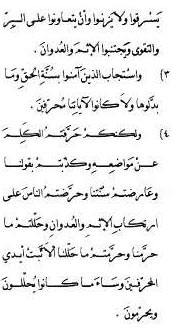 يسرقوا ولا يزنوا وأن يتعاونوا على البر
والتقوى ويجتنبوا الإثم والعدوان .
٣) واستجاب الذين آمنوا بسنة الحق وما
بدلوها ولا كانوا لآياتنا محرفين .
٤) ولكنكم حرفتم الكلم
عن مواضعه وكذبتم بقولنا
وعارضتم سنتنا وحرضتم الناس على
ارتكاب الإثم والعدوان وحللتم ما
حرمنا وحرمتم ما حللنا ألا تبت أيدي
المحرفين وساء ما كانوا يحللون
ويحرمون .